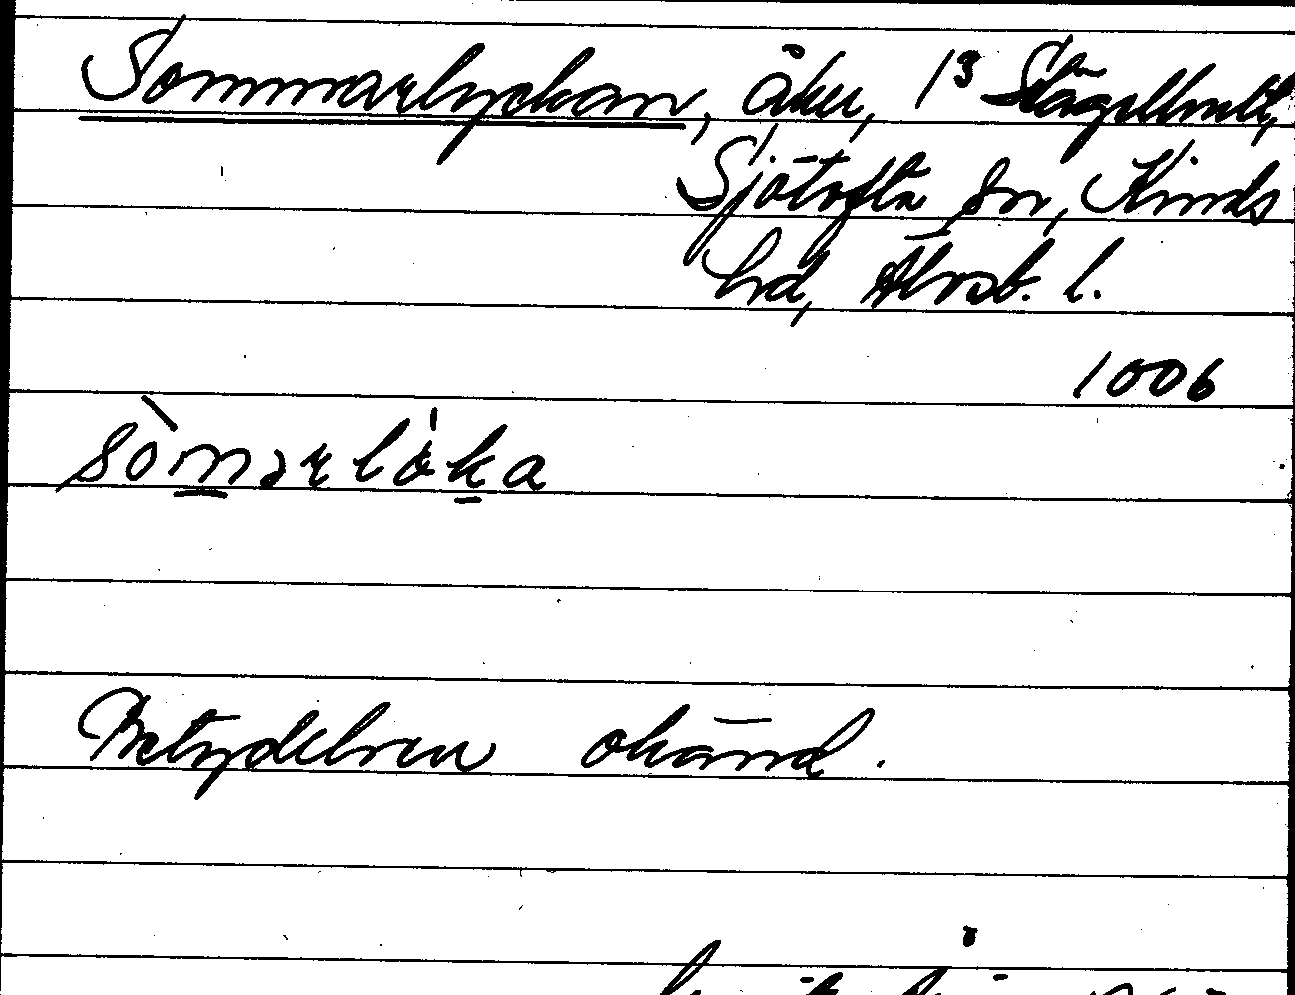 Sommarlyckan, åker, 1³ Slågellmält,
Sjötofta sn, Kinds
hd, Älvsb. l.
1006
sòmarlơ̇ka
Betydelsen okänd.